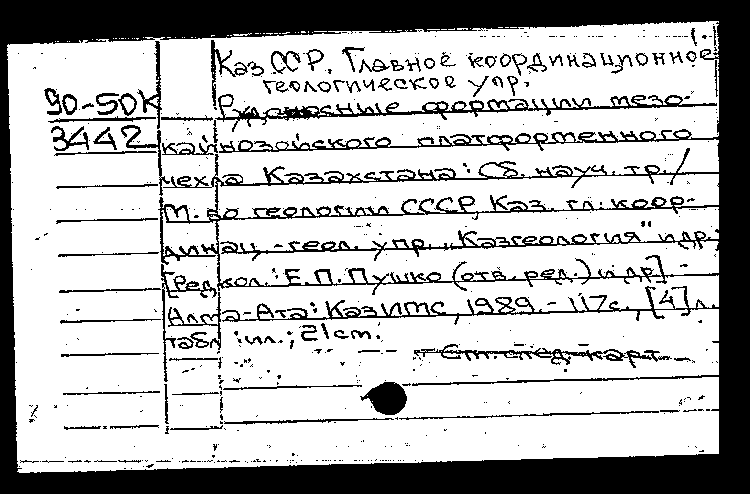 1.
Каз ССР. Главное координационное
геологическое упр.
90-50к Рудоносные формации мезо-
3442 кайнозойского платформенного
чехла Казахстана: Сб. науч. тр./
М-во геологии СССР, Каз. гл. коор-
динац.-геол. упр. "Казгеология" и др.;
[Редкол.: Е.П. Пушко (отв. ред.) и др]. -
Алма-Ата: КазИМС, 1989. - 117с., [4] л.
табл :ил.; 21см.
См. след. карт.